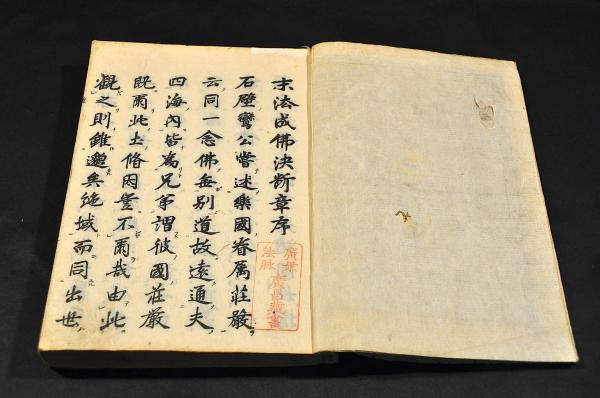 末法成佛决断章序
石壁鸞公嘗述樂國眷属莊嚴
云同一念佛無别道故遠通夫
四海内皆為兄弟謂彼國莊嚴
既爾此土脩因豈不爾哉由此
觀之則雖邈矣絶域而同出世